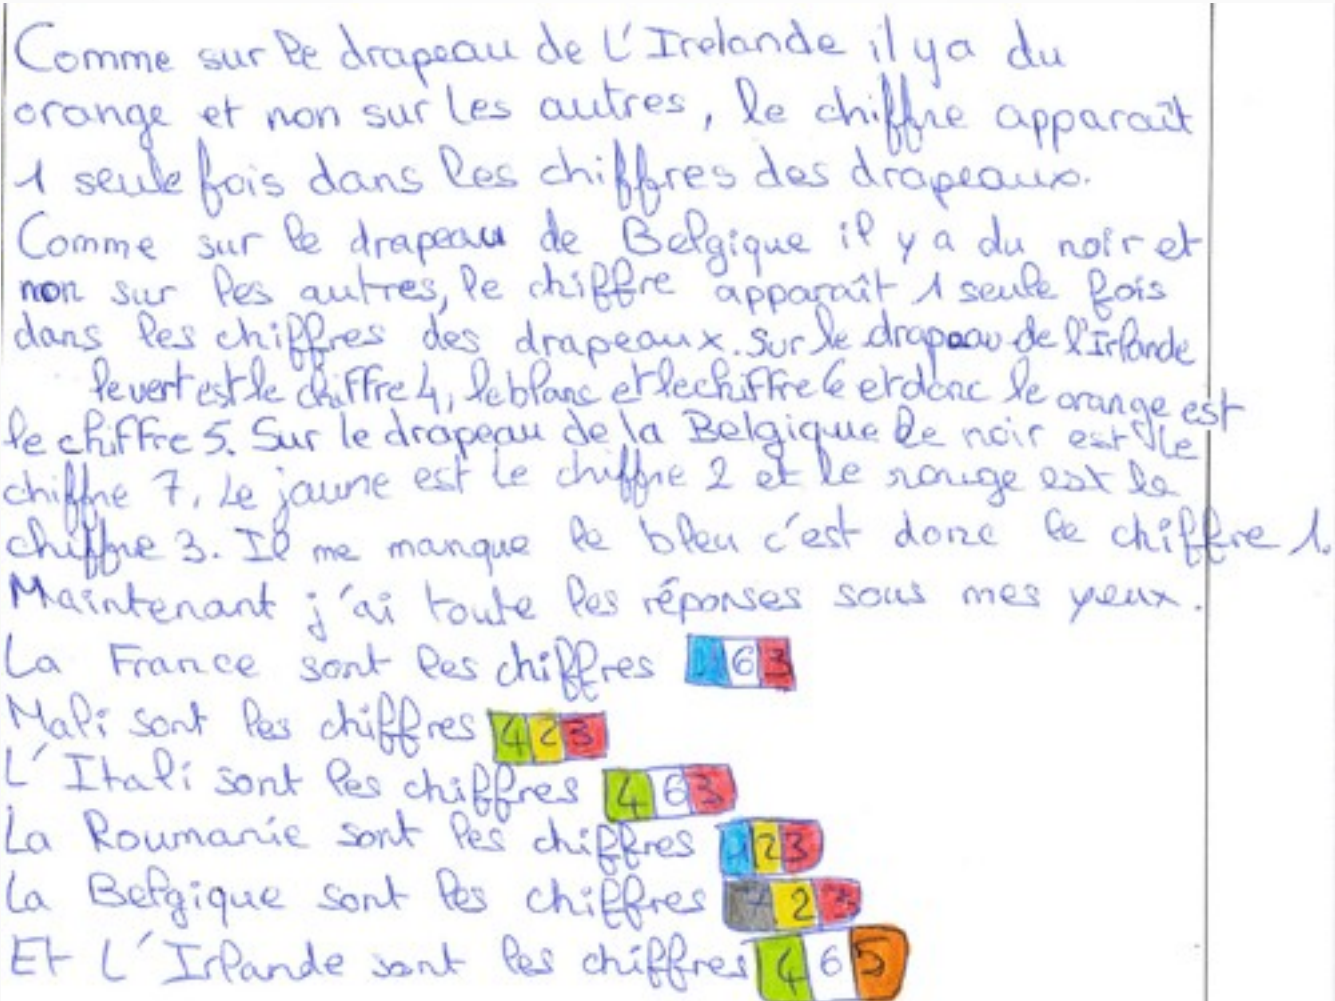 Comme sur le drapeau de L'Irelande il y a du
orange et non sur les autres, le chiffre apparaît
1 seule fois dans les chiffres des drapeaux.
Comme sur le drapeau de Belgique il y a du noir et
non sur les autres, le chiffre apparaît 1 seule fois
dans les chiffres des drapeaux. Sur le drapeau de l'Irlande
le vert est le chiffre 4, le blanc et le chiffre 6 et donc le orange est
le chiffre 5. Sur le drapeau de la Belgique le noir est le
chiffre 7. Le jaune est le chiffre 2 et le rouge est le
chiffre 3. Il me manque le bleu c'est donc le chiffre 1.
Maintenant j'ai toute les réponses sous mes yeux.
La France sont les chiffres 1 6 3
Mali sont les chiffres 4 2 3
L'Itali sont les chiffres 4 6 3
La Roumanie sont les chiffres 1 2 3
La Belgique sont les chiffres 7 2 3
Et L'Irlande sont les chiffres 4 6 5